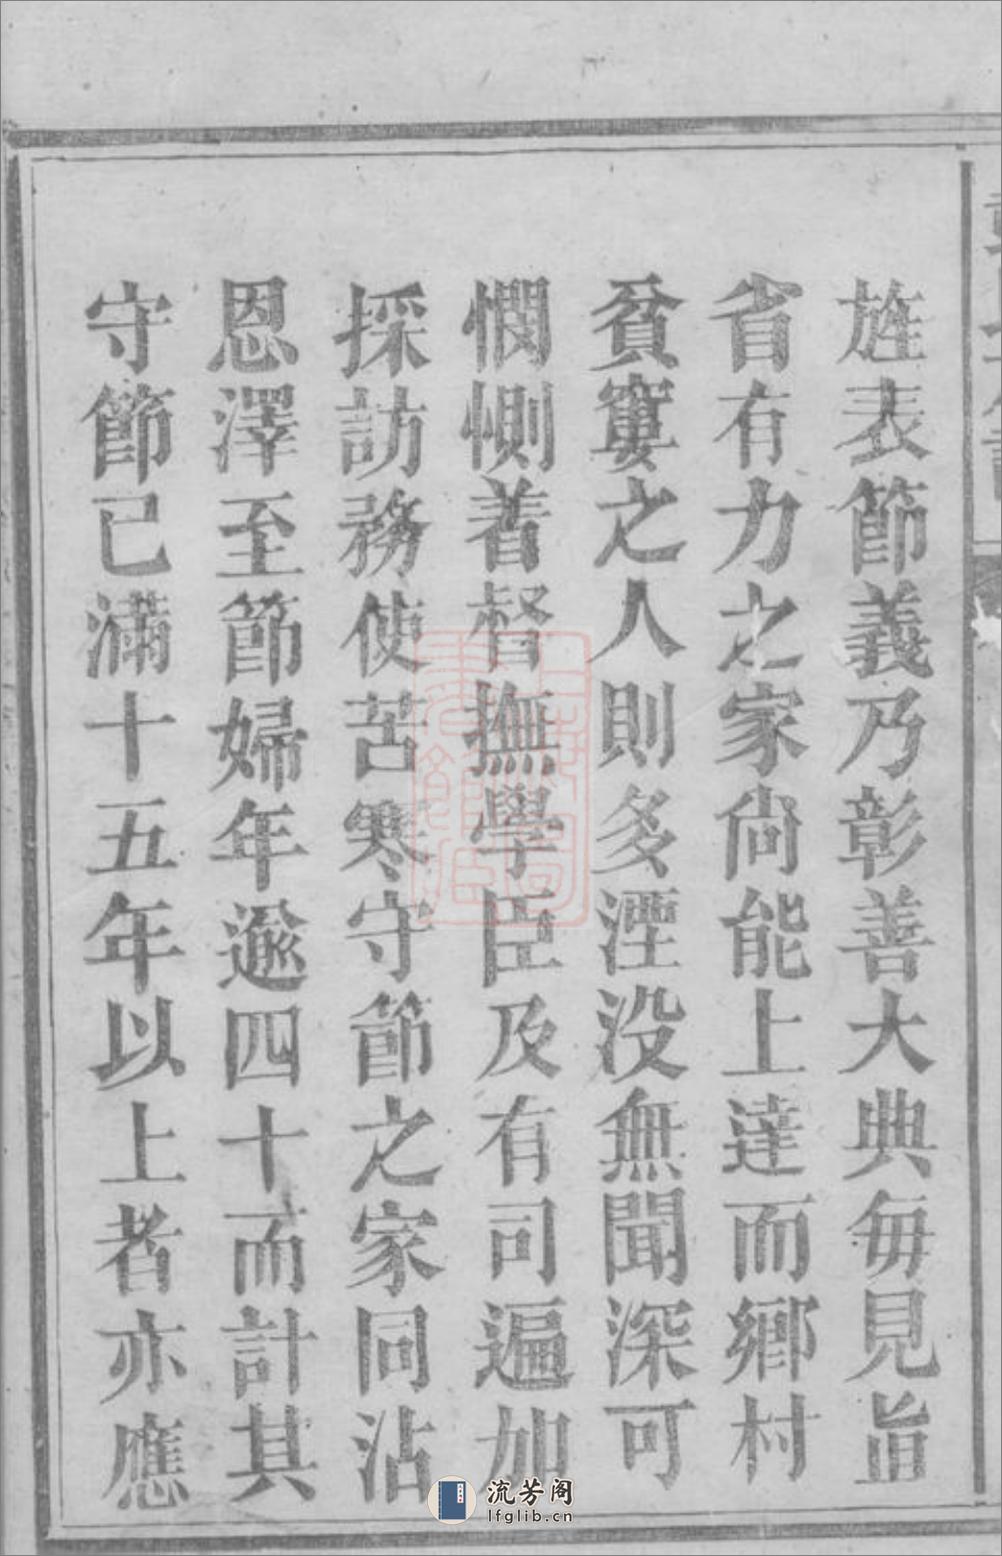 旌表節義乃彰善大典每見旹
省有力之家尙能上達而鄉村
貧窶之人則多湮没無聞深可
憫惻着督撫學臣及有司遍加
採訪務使苦寒守節之家同沾
恩澤至節婦年逾四十而計其
守節已滿十五年以上者亦應
流芳阁
lfglib.cn